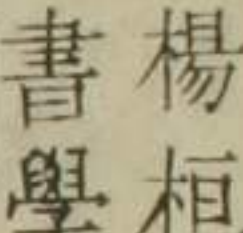 楊桓
書學